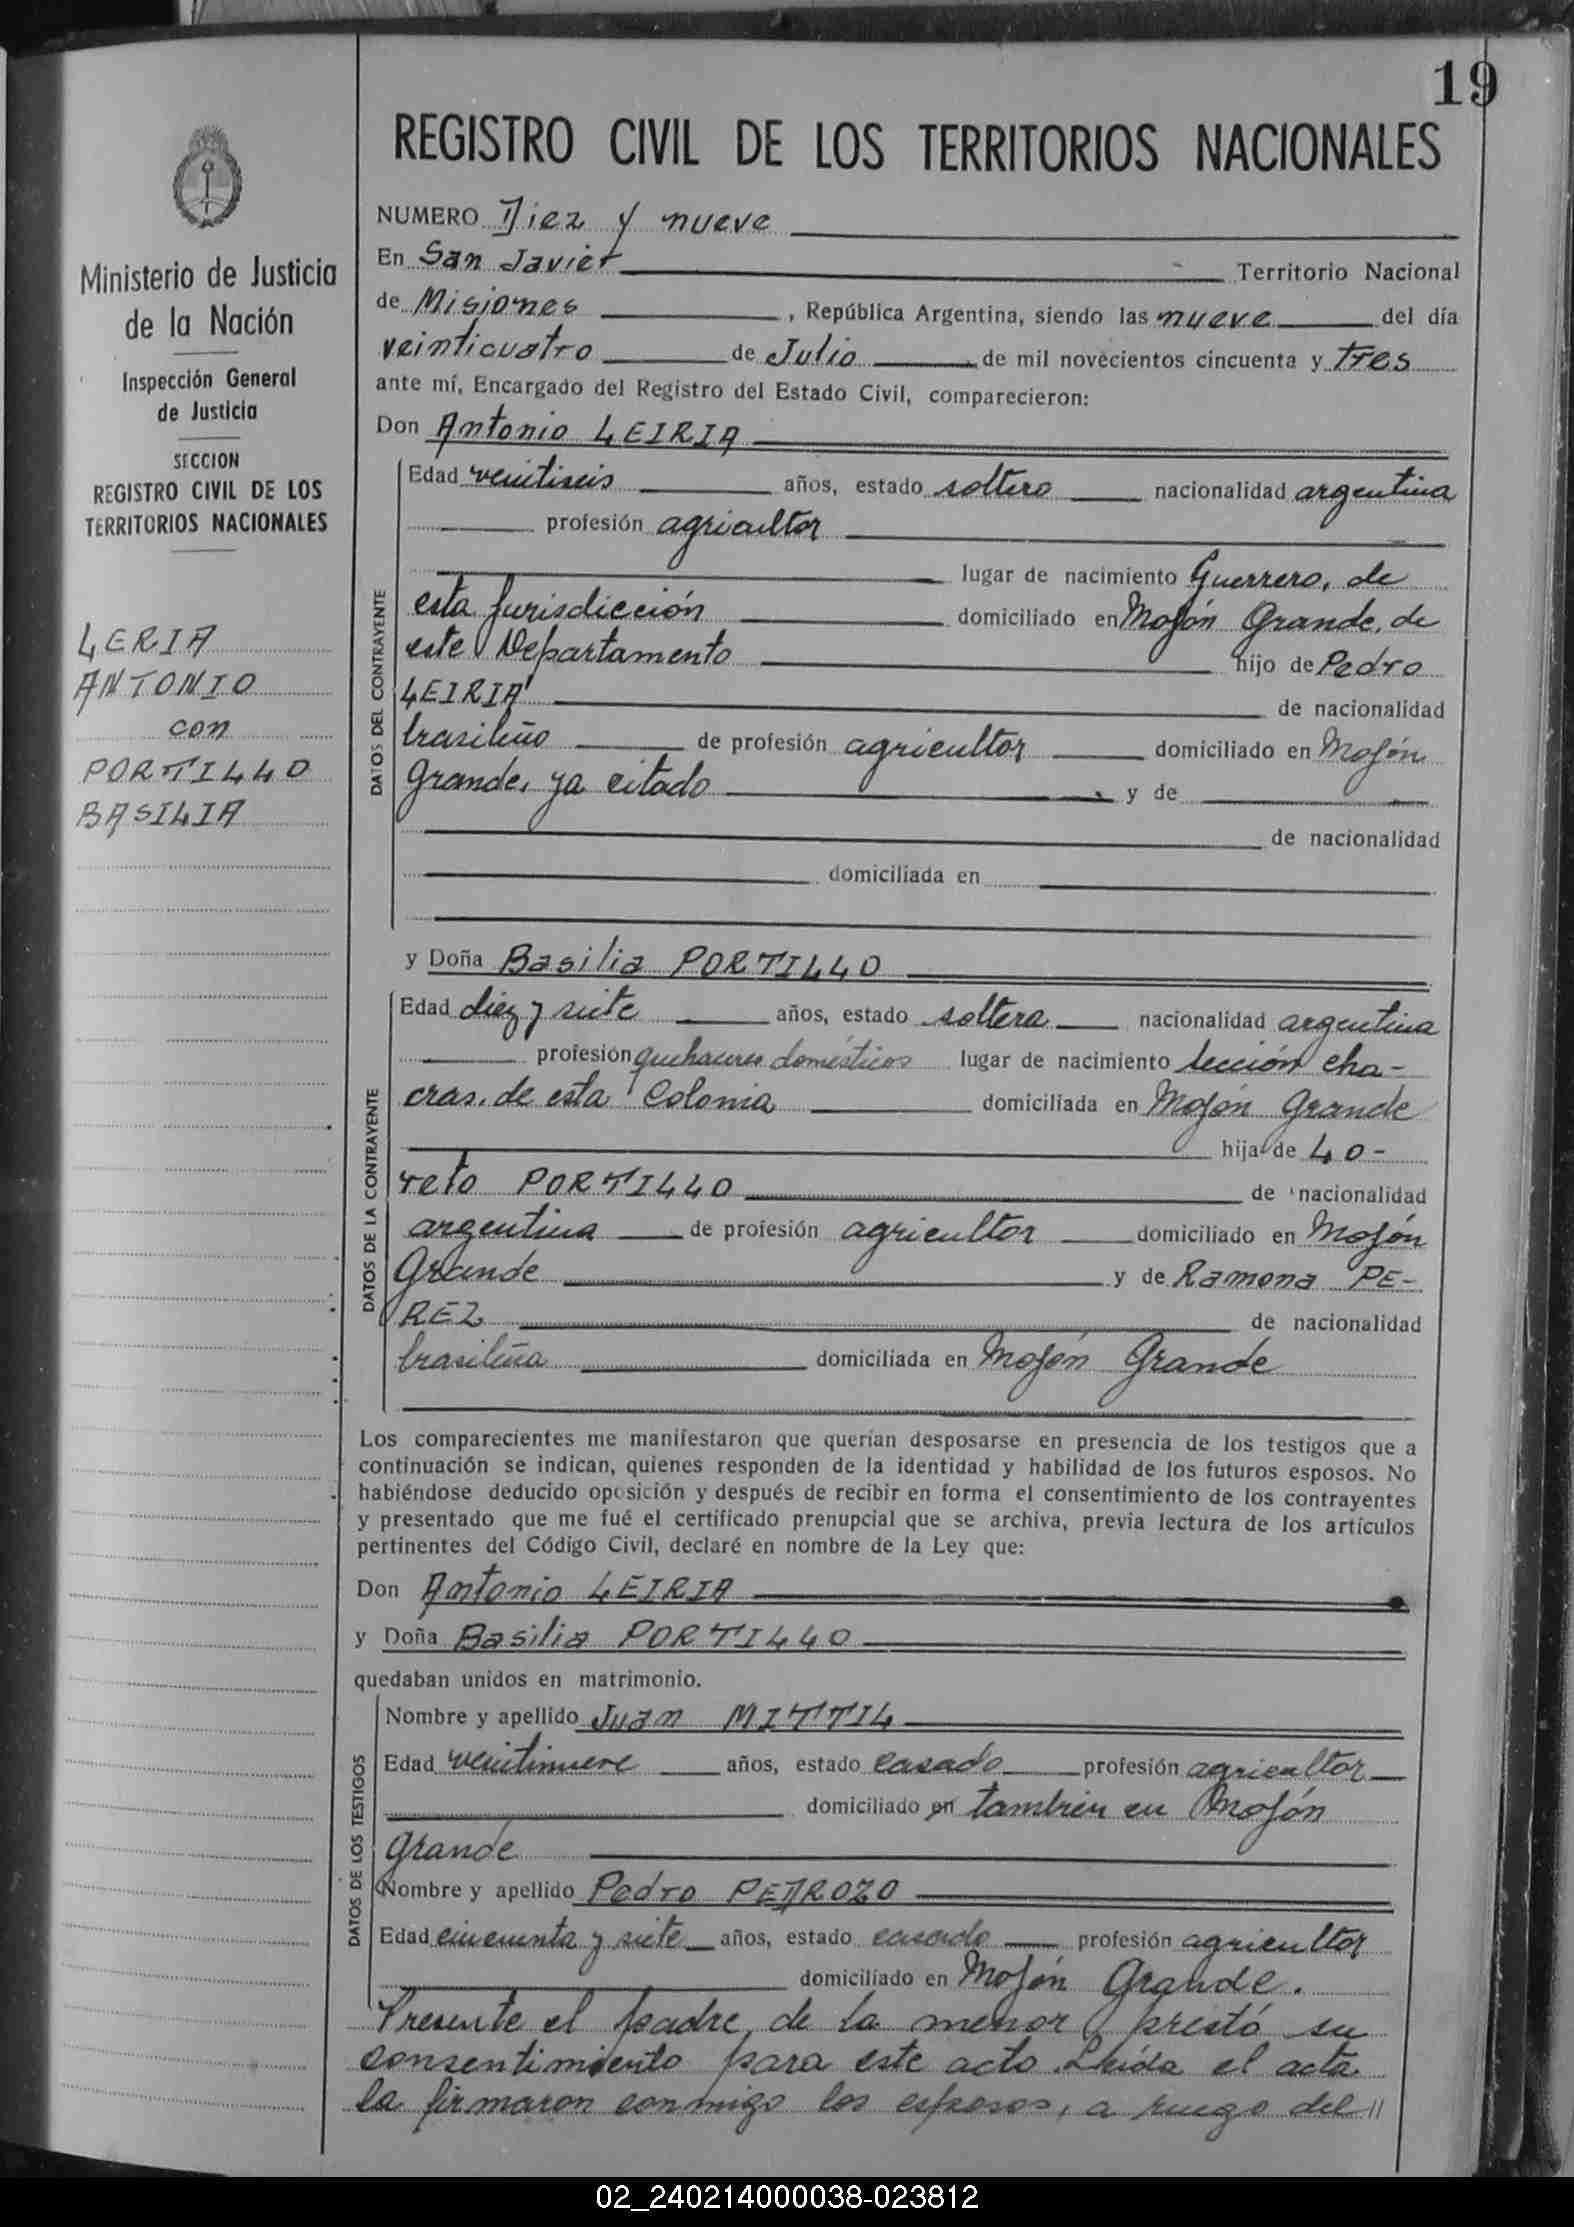 19
REGISTRO CIVIL DE LOS TERRITORIOS NACIONALES
Ministerio de Justicia
de la Nación
Inspección General
de Justicia
SECCION
REGISTRO CIVIL DE LOS
TERRITORIOS NACIONALES
LERIA
ANTONIO
con
PORTILLO
BASILIA
NUMERO Diez y nueve
En San Javier Territorio Nacional
de Misiones, República Argentina, siendo las nueve del día
veinticuatro de Julio de mil novecientos cincuenta y tres
ante mí, Encargado del Registro del Estado Civil, comparecieron:
Don Antonio LEIRIA
DATOS DEL CONTRAYENTE
Edad veintiseis años, estado soltero nacionalidad argentina
profesión agricultor
lugar de nacimiento Guerrero, de
esta Jurisdicción domiciliado en Mojón Grande, de
este Departamento hijo de Pedro
LEIRIA de nacionalidad
brasileño de profesión agricultor domiciliado en Mojón
Grande, ya citado y de
de nacionalidad
domiciliada en
y Doña Basilia PORTILLO
DATOS DE LA CONTRAYENTE
Edad diez y siete años, estado soltera nacionalidad argentina
profesión quehaceres domésticos lugar de nacimiento Sección cha-
cras, de esta Colonia domiciliada en Mojón Grande
hija de LO-
reto PORTILLO de nacionalidad
argentina de profesión agricultor domiciliado en Mojón
Grande y de Ramona PE-
REZ de nacionalidad
brasileña domiciliada en Mojón Grande
Los comparecientes me manifestaron que querían desposarse en presencia de los testigos que a
continuación se indican, quienes responden de la identidad y habilidad de los futuros esposos. No
habiéndose deducido oposición y después de recibir en forma el consentimiento de los contrayentes
y presentado que me fué el certificado prenupcial que se archiva, previa lectura de los artículos
pertinentes del Código Civil, declaré en nombre de la Ley que:
Don Antonio LEIRIA
y Doña Basilia PORTILLO
quedaban unidos en matrimonio.
DATOS DE LOS TESTIGOS
Nombre y apellido Juan MITTIL
Edad veintinueve años, estado casado profesión agricultor
domiciliado en también en Mojón
Grande
Nombre y apellido Pedro PEDROZO
Edad cincuenta y siete años, estado casado profesión agricultor
domiciliado en Mojón Grande.
Presente el padre, de la menor, prestó su
consentimiento para este acto. Leída el acta
la firmaron conmigo los esposos, a ruego del //
02_240214000038-023812